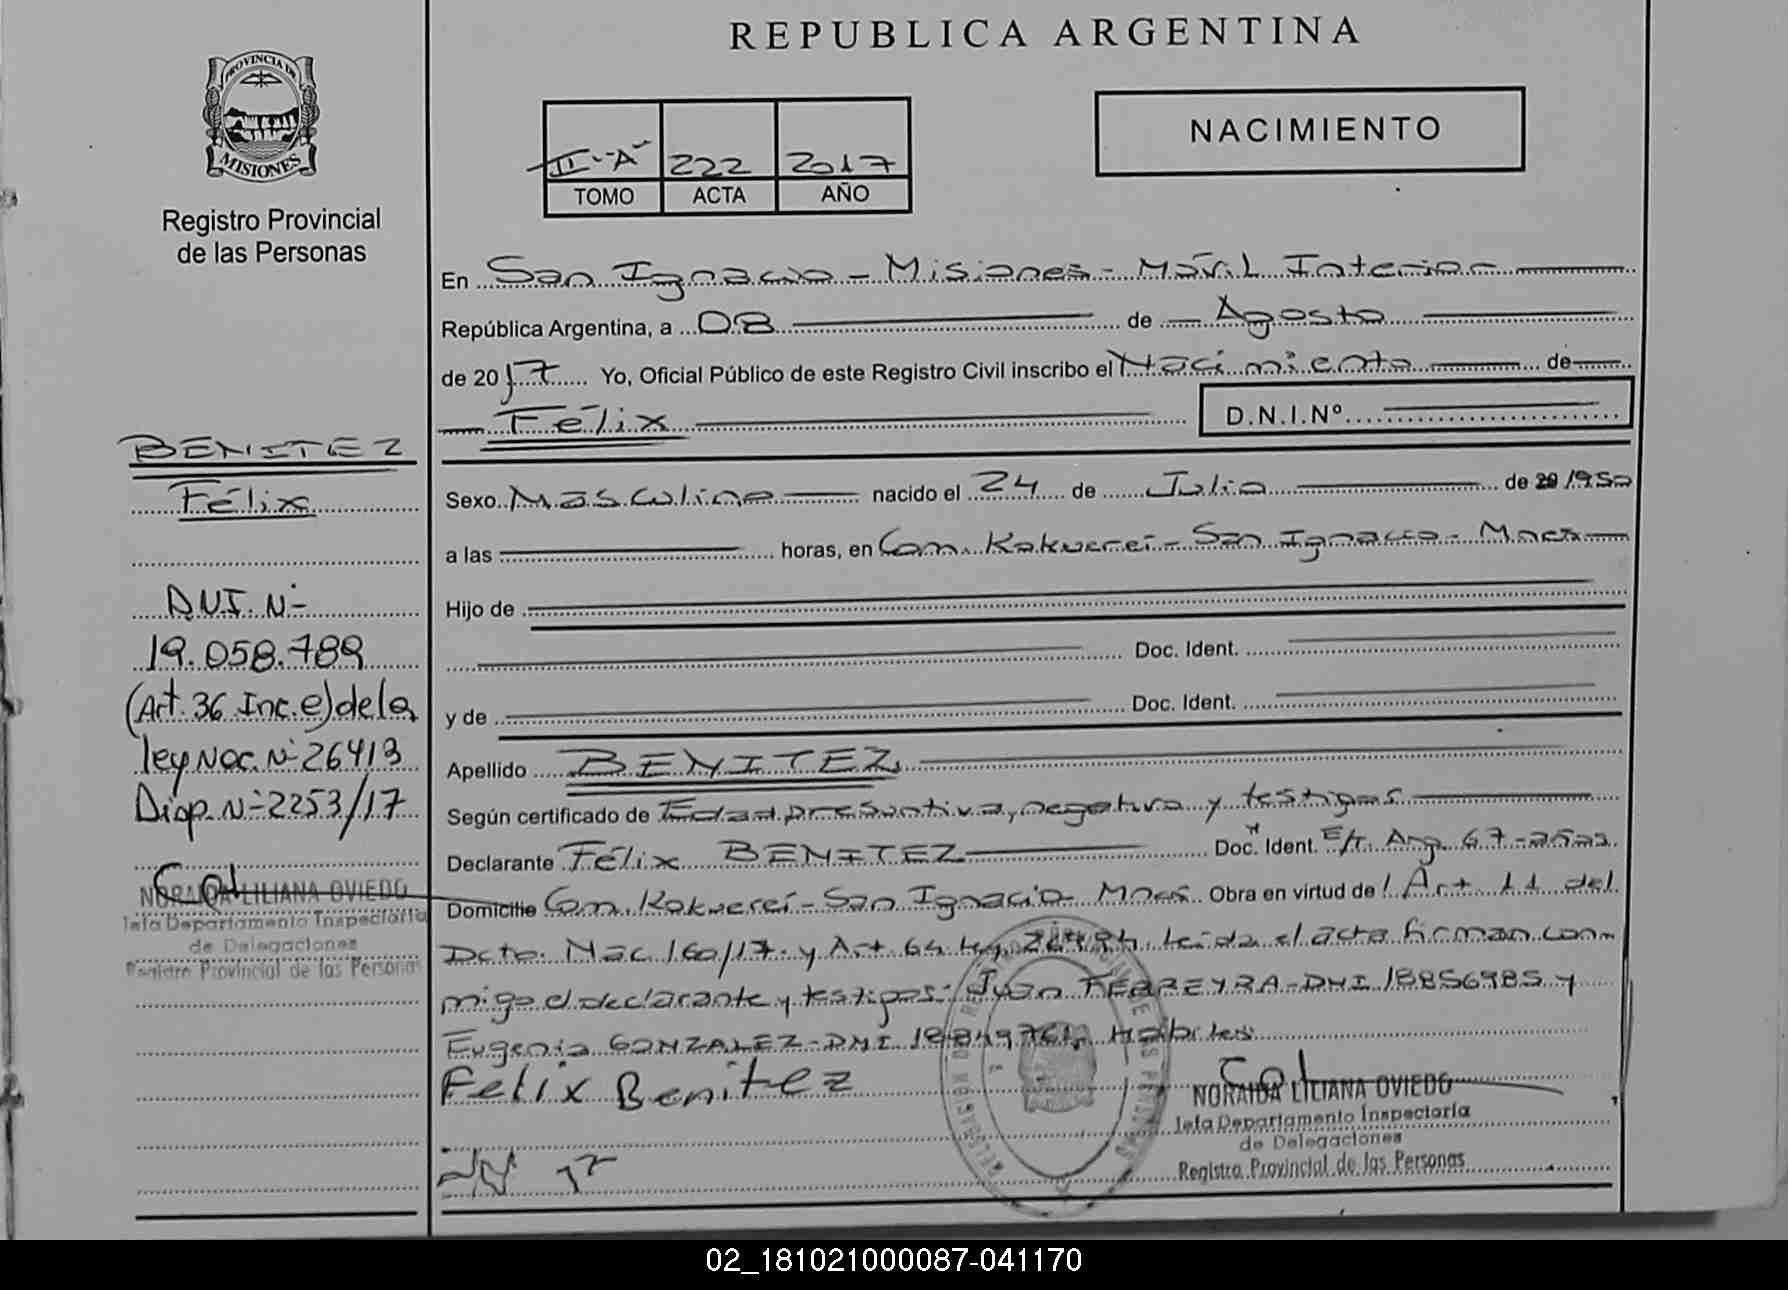 REPUBLICA ARGENTINA
PROVINCIA DE
MISIONES
Registro Provincial
de las Personas
II-"A" 222 2017
TOMO ACTA AÑO
NACIMIENTO
En San Ignacio - Misiones - Móvil Interior
República Argentina, a 08 de Agosto
de 2017 Yo, Oficial Público de este Registro Civil inscribo el Nacimiento de
Félix D.N.I.Nº
Sexo Masculino nacido el 24 de Julio de 20/1950
a las horas, en Com. Kokuerei - San Ignacio - Mnes
Hijo de
Doc. Ident.
y de Doc. Ident.
Apellido BENITEZ
Según certificado de Edad presuntiva, negativa y testigos
Declarante Félix BENITEZ Doc. Ident.
Domicilio Com. Kokuerei - San Ignacio - Mnes. Obra en virtud de l Art 11 del
Dcto. Nac 160/17 y Art 64 leida el acta firman con-
migo el declarante y testigos: Juan FERREYRA - DNI 18856985 y
Eugenio GONZALEZ - DNI Hábiles
Felix Benitez
NORAIDA LILIANA OVIEDO
Jefa Departamento Inspectoría
de Delegaciones
Registro Provincial de las Personas
BENITEZ
Félix
D.N.I. Nº
19.058.789
(Art. 36 Inc. e) de la
ley Nac. Nº 26413
Disp. Nº 2253/17
NORAIDA LILIANA OVIEDO
Jefa Departamento Inspectoría
de Delegaciones
Registro Provincial de las Personas
02_181021000087-041170